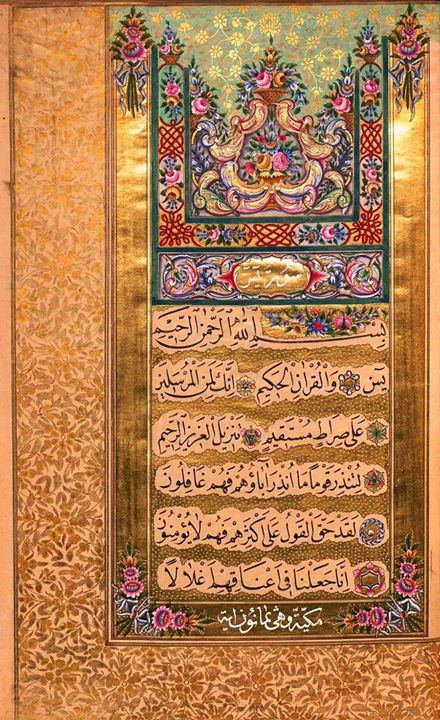 سورة يس
بِسْمِ اللّٰهِ الرَّحْمٰنِ الرَّحِيمِ
يٰسٓ وَالْقُرْاٰنِ الْحَكِيمِ اِنَّكَ لَمِنَ الْمُرْسَلِينَ
عَلٰى صِرَاطٍ مُسْتَقِيمٍ تَنْزِيلَ الْعَزِيزِ الرَّحِيمِ
لِتُنْذِرَ قَوْمًا مَا اُنْذِرَ اٰبَاؤُهُمْ فَهُمْ غَافِلُونَ
لَقَدْ حَقَّ الْقَوْلُ عَلٰى اَكْثَرِهِمْ فَهُمْ لَا يُؤْمِنُونَ
اِنَّا جَعَلْنَا فِى اَعْنَاقِهِمْ اَغْلَالًا
مكية وهى ثمانون اية